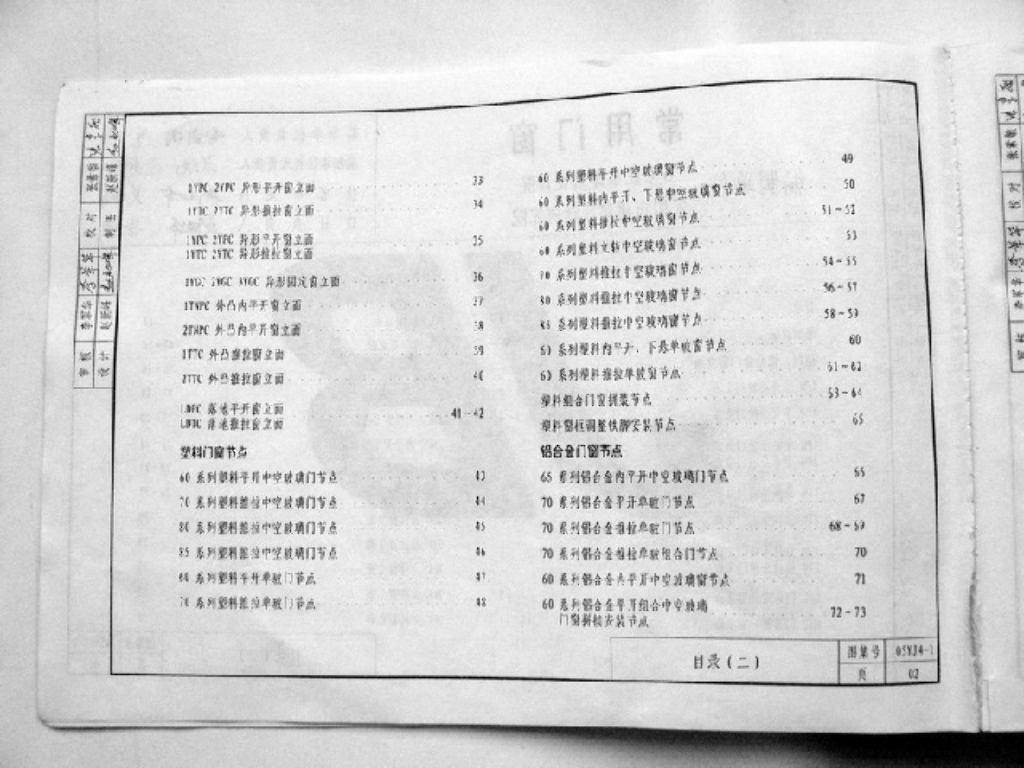 异形平开窗立面 33
异形推拉窗立面 34
异形平开窗立面 35
异形推拉窗立面
异形固定窗立面 36
外凸内平开窗立面 37
外凸内平开窗立面 38
外凸推拉窗立面 39
外凸推拉窗立面 40
落地平开窗立面 41-42
落地推拉窗立面
塑料门窗节点
60 系列塑料平开中空玻璃门节点 43
70 系列塑料推拉中空玻璃门节点 44
80 系列塑料推拉中空玻璃门节点 45
85 系列塑料推拉中空玻璃门节点 46
60 系列塑料平开单玻门节点 47
70 系列塑料推拉单玻门节点 48
60 系列塑料平开中空玻璃窗节点 49
60 系列塑料内平开、下悬中空玻璃窗节点 50
60 系列塑料推拉中空玻璃窗节点 51-52
60 系列塑料立转中空玻璃窗节点 53
系列塑料推拉中空玻璃窗节点 54-55
80 系列塑料推拉中空玻璃窗节点 56-57
85 系列塑料推拉中空玻璃窗节点 58-59
60 系列塑料内平开、下悬单玻窗节点 60
系列塑料推拉单玻窗节点 61-62
塑料组合门窗拼装节点 63-64
塑料窗框调整铁脚安装节点 65
铝合金门窗节点
65 系列铝合金内平开中空玻璃门节点 66
70 系列铝合金平开单玻门节点 67
70 系列铝合金推拉单玻门节点 68-69
70 系列铝合金推拉单玻组合门节点 70
60 系列铝合金内平开中空玻璃窗节点 71
60 系列铝合金平开组合中空玻璃 72-73
门窗拼装安装节点
目录(二)
图集号 05YJ4-1
页 02
审核
校对
设计
制图